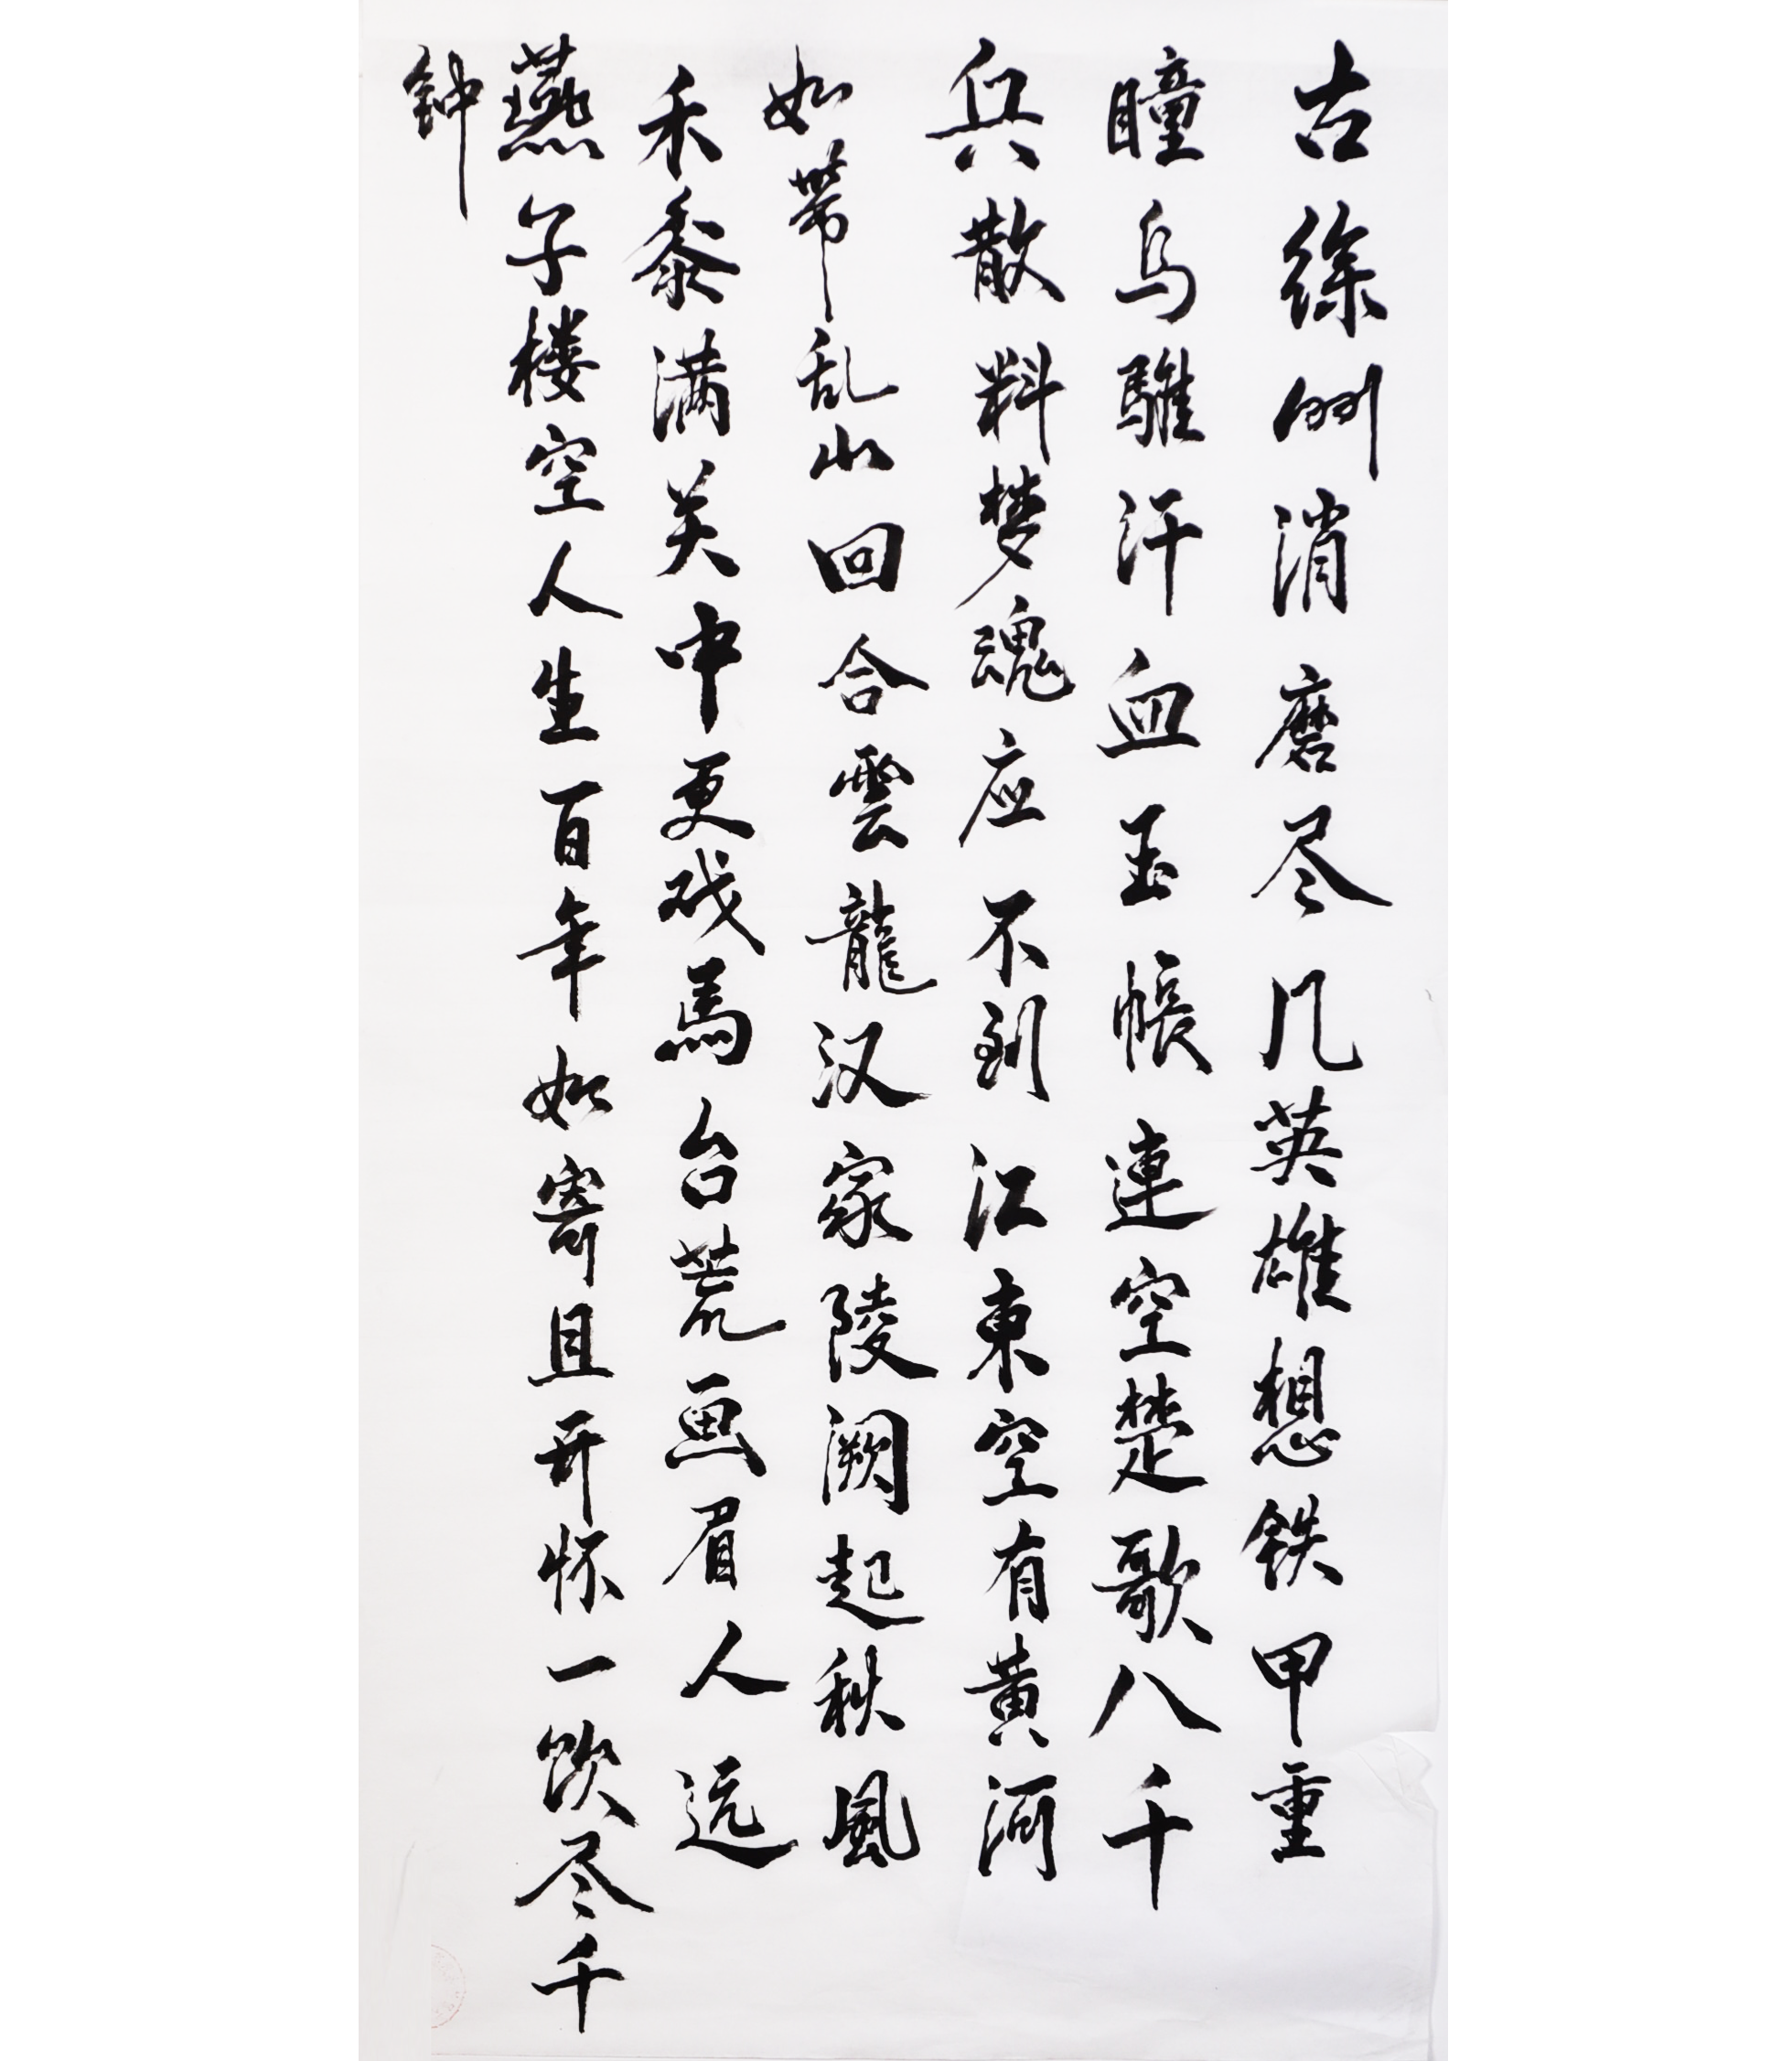 古徐州消磨尽几英雄想铁甲重
瞳乌骓汗血玉帐連空楚歌八千
兵散料梦魂应不到江東空有黄河
如带乱山回合雲龍汉家陵阙起秋風
禾黍满关中更戏馬台荒画眉人远
燕子楼空人生百年如寄且开怀一饮尽千
钟